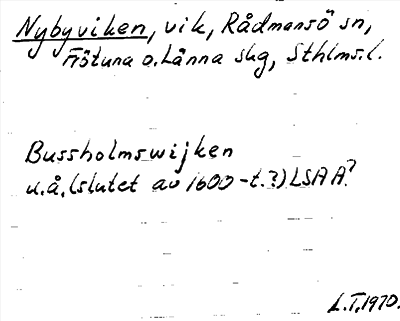 Nybyviken, vik, Rådmansö sn,
Frötuna o. Länna skg, Sthlms. l.
Bussholmswijken
u.å. (slutet av 1600-t.?) LSA A?
L.T. 1970.